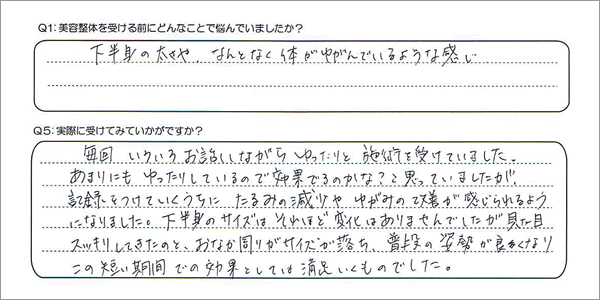 Q1：美容整体を受ける前にどんなことで悩んでいましたか？
下半身の太さや、なんとなく体がゆがんでいるような感じ
Q5：実際に受けてみていかがですか？
毎回 いろいろ お話ししながら ゆったりと 施術を受けていました。
あまりにも ゆったりしているので効果でるのかな？と思っていましたが、
記録をつけていくうちに たるみの減りや ゆがみの改善が感じられるよう
になりました。下半身のサイズは それほど変化はありませんでしたが 見た目
スッキリしてきたのと、おなか周りがサイズが落ち、普段の姿勢が良くなり
この短い期間での効果としては 満足いくものでした。